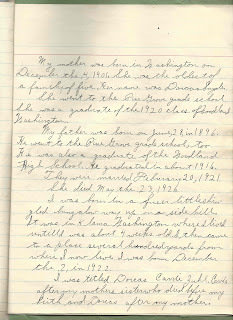 My mother was born in Washington on
December the 4, 1906. She was the oldest of
a family of five. Her name was Dorcas
She went to the Pine Grove grade school
She was a graduate of the 1920 class of Woodland
Washington.
My father was born on June, 28 in 1896.
He went to the Pine Grove grade school, too
He was also a graduate of the Woodland
High school. He graduated in about 1916.
They were married February 20, 1921
She died May the 23, 1926
I was born in a
bungalow way up on a side hill.
It was in Kalama Washington where I lived
untill I was about 4 weeks old then came
to a place several hundred yards from
where I now live. I was born December
the 2, in 1922.
I was titled Dorcas Carrie
after my mothers sister who died before my
Birth and Dorcas after my mother.